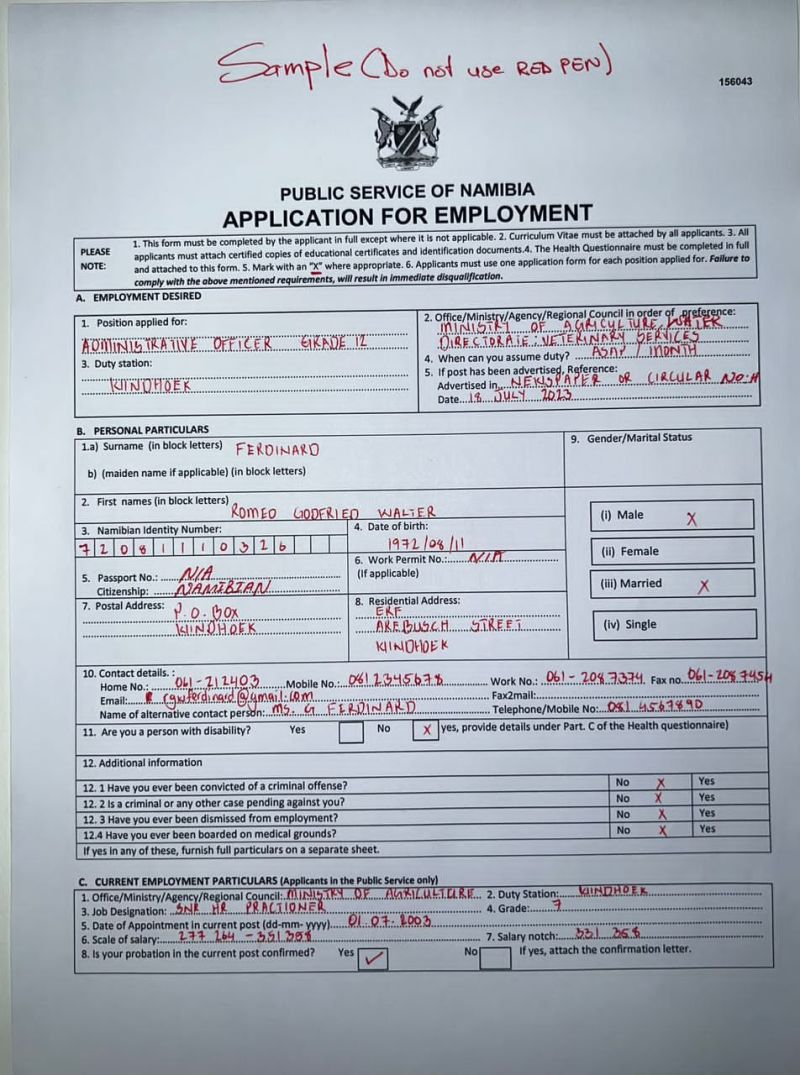 Sample (Do not use RED PEN)
156043
PUBLIC SERVICE OF NAMIBIA
APPLICATION FOR EMPLOYMENT
PLEASE NOTE:
1. This form must be completed by the applicant in full except where it is not applicable. 2. Curriculum Vitae must be attached by all applicants. 3. All
applicants must attach certified copies of educational certificates and identification documents.4. The Health Questionnaire must be completed in full
and attached to this form. 5. Mark with an "X" where appropriate. 6. Applicants must use one application form for each position applied for. Failure to
comply with the above mentioned requirements, will result in immediate disqualification.
A. EMPLOYMENT DESIRED
1. Position applied for:
ADMINISTRATIVE OFFICER GRADE 12
3. Duty station:
WINDHOEK
2. Office/Ministry/Agency/Regional Council in order of preference:
MINISTRY OF AGRICULTURE, WATER
DIRECTORAIE: VETERINARY SERVICES
4. When can you assume duty? ASAP / MONTH
5. If post has been advertised, Reference:
Advertised in NEWSPAPER OR CIRCULAR NO:A
Date 18 JULY 2023
B. PERSONAL PARTICULARS
1.a) Surname (in block letters) FERDINARD
b) (maiden name if applicable) (in block letters)
2. First names (in block letters) ROMEO GODFRIED WALTER
3. Namibian Identity Number:
7 2 0 8 1 1 1 0 3 2 6
4. Date of birth:
1972/08/11
5. Passport No.: N/A
Citizenship: NAMIBIAN
6. Work Permit No.: N/A
(If applicable)
7. Postal Address: P.O. BOX
WINDHOEK
8. Residential Address:
ERF
AREBUSCH STREET
WINDHOEK
9. Gender/Marital Status
(i) Male X
(ii) Female
(iii) Married X
(iv) Single
10. Contact details. :
Home No.: 061-212403 Mobile No.: 0812345678 Work No.: 061-2087374 Fax no. 061-2087454
Email: rgwferdinard@gmail.com Fax2mail:
Name of alternative contact person: MS. G FERDINARD Telephone/Mobile No: 081 4567890
11. Are you a person with disability? Yes No X yes, provide details under Part. C of the Health questionnaire)
12. Additional information
12. 1 Have you ever been convicted of a criminal offense? No X Yes
12. 2 Is a criminal or any other case pending against you? No X Yes
12. 3 Have you ever been dismissed from employment? No X Yes
12.4 Have you ever been boarded on medical grounds? No X Yes
If yes in any of these, furnish full particulars on a separate sheet.
C. CURRENT EMPLOYMENT PARTICULARS (Applicants in the Public Service only)
1. Office/Ministry/Agency/Regional Council: MINISTRY OF AGRICULTURE 2. Duty Station: WINDHOEK
3. Job Designation: SNR HR PRACTIONER 4. Grade: 7
5. Date of Appointment in current post (dd-mm- yyyy) 01.07.2003
6. Scale of salary: 277 264 - 331 358 7. Salary notch: 331 358
8. Is your probation in the current post confirmed? Yes ✓ No If yes, attach the confirmation letter.